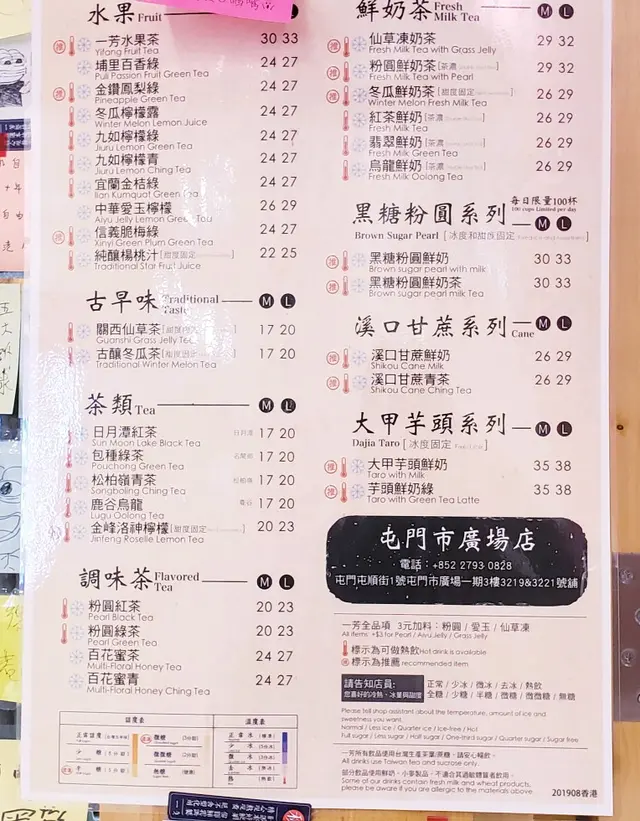 水果 Fruit
一芳水果茶 30 33
Yifang Fruit Tea
埔里百香綠 24 27
Puli Passion Fruit Green Tea
推 金鑽鳳梨綠 24 27
Pineapple Green Tea
冬瓜檸檬露 24 27
Winter Melon Lemon Juice
九如檸檬綠 24 27
Jiuru Lemon Green Tea
九如檸檬青 24 27
Jiuru Lemon Ching Tea
宜蘭金桔綠 24 27
Ilan Kumquat Green Tea
中華愛玉檸檬 26 29
Aiyu Jelly Lemon Green Tea
推 信義脆梅綠 24 27
Xinyi Green Plum Green Tea
純釀楊桃汁 [甜度固定] 22 25
Traditional Star Fruit Juice
古早味 Traditional Taste M L
關西仙草茶 17 20
Guanshi Grass Jelly Tea
古釀冬瓜茶 [甜度固定] 17 20
Traditional Winter Melon Tea
茶類 Tea M L
日月潭紅茶 日月潭 17 20
Sun Moon Lake Black Tea
包種綠茶 17 20
Pouchong Green Tea
松柏嶺青茶 17 20
Songboling Ching Tea
鹿谷烏龍 鹿谷 17 20
Lugu Oolong Tea
金峰洛神檸檬 [甜度固定] 20 23
Jinfeng Roselle Lemon Tea
調味茶 Flavored Tea M L
粉圓紅茶 20 23
Pearl Black Tea
粉圓綠茶 20 23
Pearl Green Tea
百花蜜茶 24 27
Multi-Floral Honey Tea
百花蜜青 24 27
Multi-Floral Honey Ching Tea
甜度表 溫度表
鮮奶茶 Fresh Milk Tea M L
推 仙草凍奶茶 29 32
Fresh Milk Tea with Grass Jelly
推 粉圓鮮奶茶 [茶濃] 29 32
Fresh Milk Tea with Pearl
推 冬瓜鮮奶茶 [甜度固定] 26 29
Winter Melon Fresh Milk Tea
紅茶鮮奶 [茶濃] 26 29
Fresh Milk Tea
翡翠鮮奶 [茶濃] 26 29
Fresh Milk Green Tea
烏龍鮮奶 [茶濃] 26 29
Fresh Milk Oolong Tea
黑糖粉圓系列 每日限量100杯
100 cups Limited per day
M L
Brown Sugar Pearl [冰度和甜度固定]
推 黑糖粉圓鮮奶 30 33
Brown sugar pearl with milk
推 黑糖粉圓鮮奶茶 30 33
Brown sugar pearl milk Tea
溪口甘蔗系列 Cane M L
推 溪口甘蔗鮮奶 26 29
Shikou Cane Milk
推 溪口甘蔗青茶 26 29
Shikou Cane Ching Tea
大甲芋頭系列 M L
Dajia Taro [冰度固定]
推 大甲芋頭鮮奶 35 38
Taro with Milk
推 芋頭鮮奶綠 35 38
Taro with Green Tea Latte
屯門市廣場店
電話：+852 2793 0828
屯門屯順街1號屯門市廣場一期3樓3219&3221號舖
一芳全品項 3元加料：粉圓 / 愛玉 / 仙草凍
All items: +$3 for Pearl / Aiyu Jelly / Grass Jelly
標示為可做熱飲 Hot drink is available
推 標示為推薦 recommended item
請告知店員：
您喜好的冷熱、冰量與甜度
正常 / 少冰 / 微冰 / 去冰 / 熱飲
全糖 / 少糖 / 半糖 / 微糖 / 微微糖 / 無糖
Please tell shop assistant about the temperature, amount of ice and
sweetness you want.
Normal / Less ice / Quarter ice / Ice-free / Hot
Full sugar / Less sugar / Half sugar / One-third sugar / Quarter sugar / Sugar free
一芳所有飲品使用台灣生產茶葉/蔗糖，請安心暢飲。
All drinks use Taiwan tea and sucrose only.
部分飲品使用鮮奶、小麥製品，不適合其過敏體質者飲用。
Some of our drinks contain fresh milk and wheat products,
please be aware if you are allergic to the materials above.
201908香港